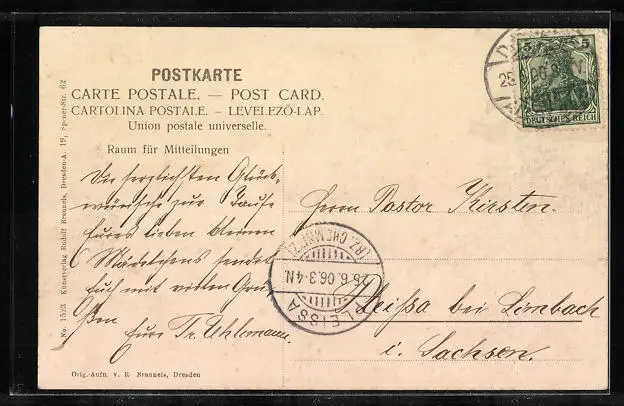 POSTKARTE
CARTE POSTALE. — POST CARD.
CARTOLINA POSTALE. – LEVELEZŐ-LAP.
Union postale universelle.
Raum für Mitteilungen
Die herzlichsten Glück-
wünsche zur Taufe
Eures lieben kleinen
Mädelchens sendet
Euch mit vielen Grü-
ßen
Eure Fr. Uhlemann.
Herrn Pastor Kirsten.
Pleißa bei Limbach
i. Sachsen.
5 5
DEUTSCHES REICH
25 06.8
PLEISSA
(BZ. CHEMNITZ)
25.6.06.3-4N.
No. 1523 Kunstverlag Rudolf Brauneis, Dresden-A. 19, 62
Orig.-Aufn. v. R. Brauneis, Dresden